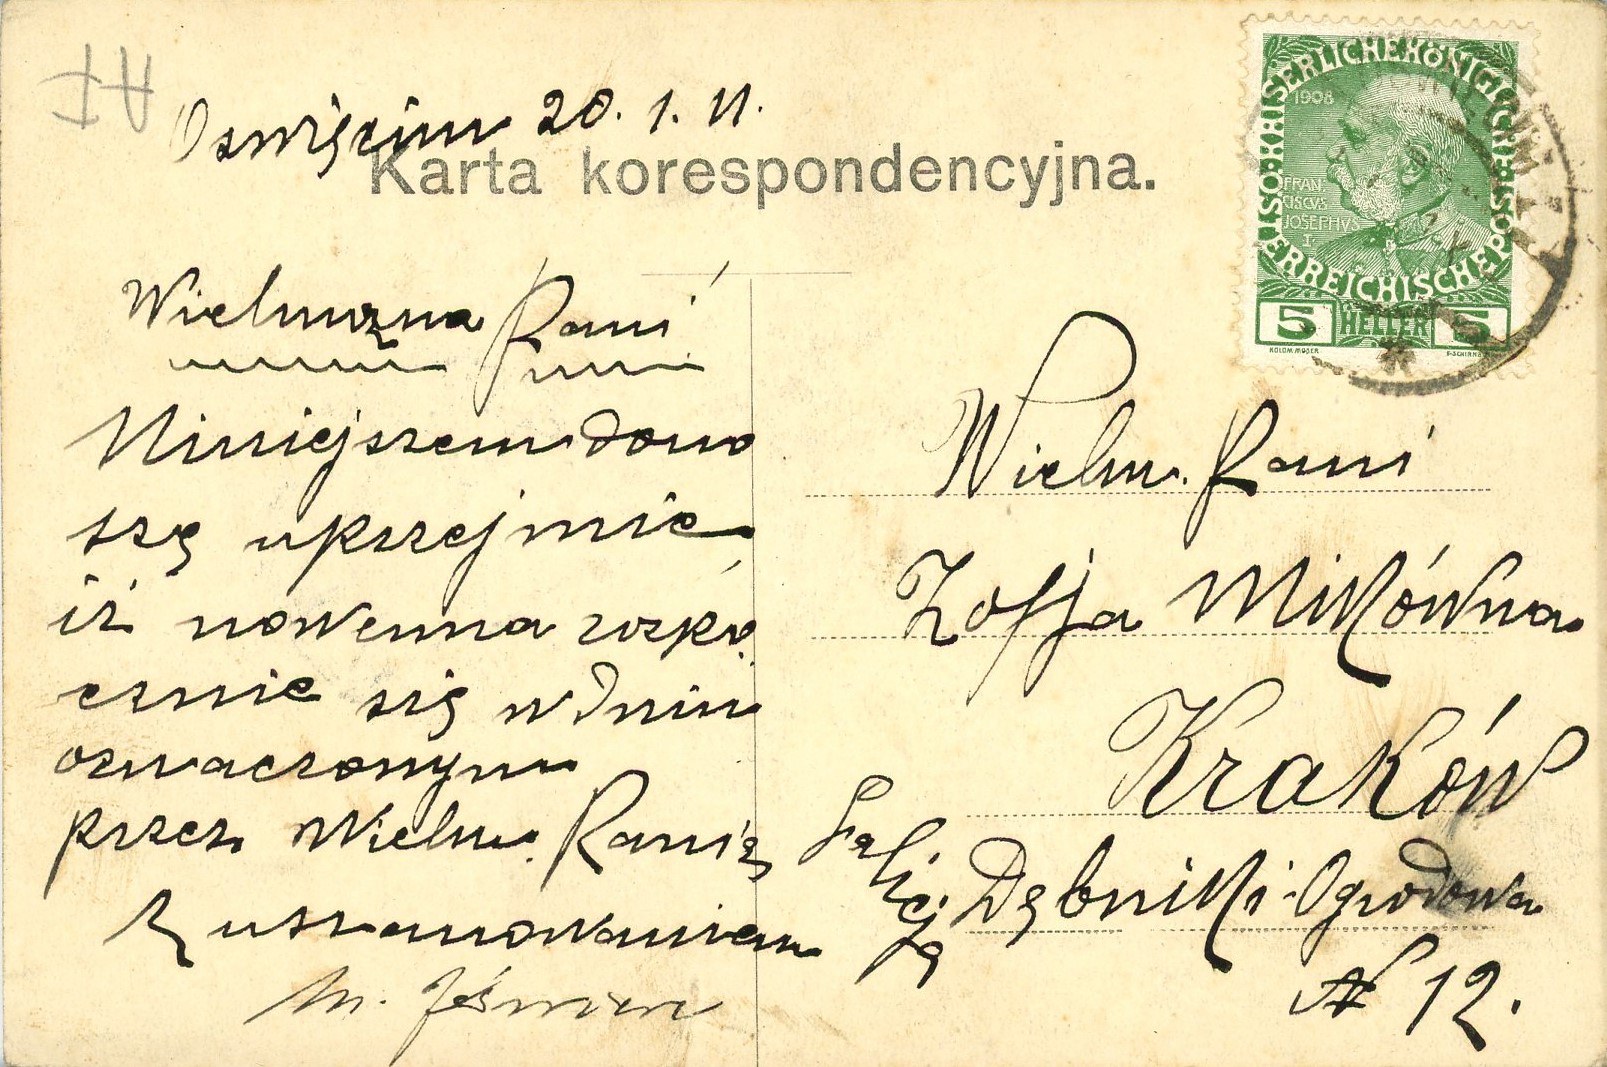 Oświęcim 20. 1. 11.
Karta korespondencyjna.
KAISERLICHE KÖNIGLICHE ÖSTERREICHISCHE POST
1908
FRAN
CISCVS
JOSEPHVS
I
5 HELLER 5
KOLOM. MOSER
F. SCHIRNB
Wielmożna Pani
Niniejszem dono
szę uprzejmie
iż nowenna rozpo
cznie się w dniu
oznaczonym
przez Wielm. Panią
Z uszanowaniem
M.
Wielm. Pani
Zofja Mikówna
Kraków
Galicja
Dębniki Ogrodowa
N 12.